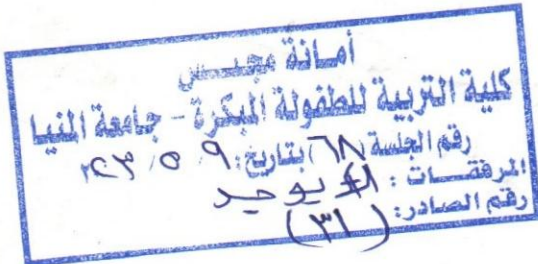 أمانة مجلس
كلية التربية للطفولة المبكرة - جامعة المنيا
رقم الجلسة ٦٨ بتاريخ: ٩ / ٥ / ٢٠٢٣
المرفقات: لا يوجد
رقم الصادر: (٣١)